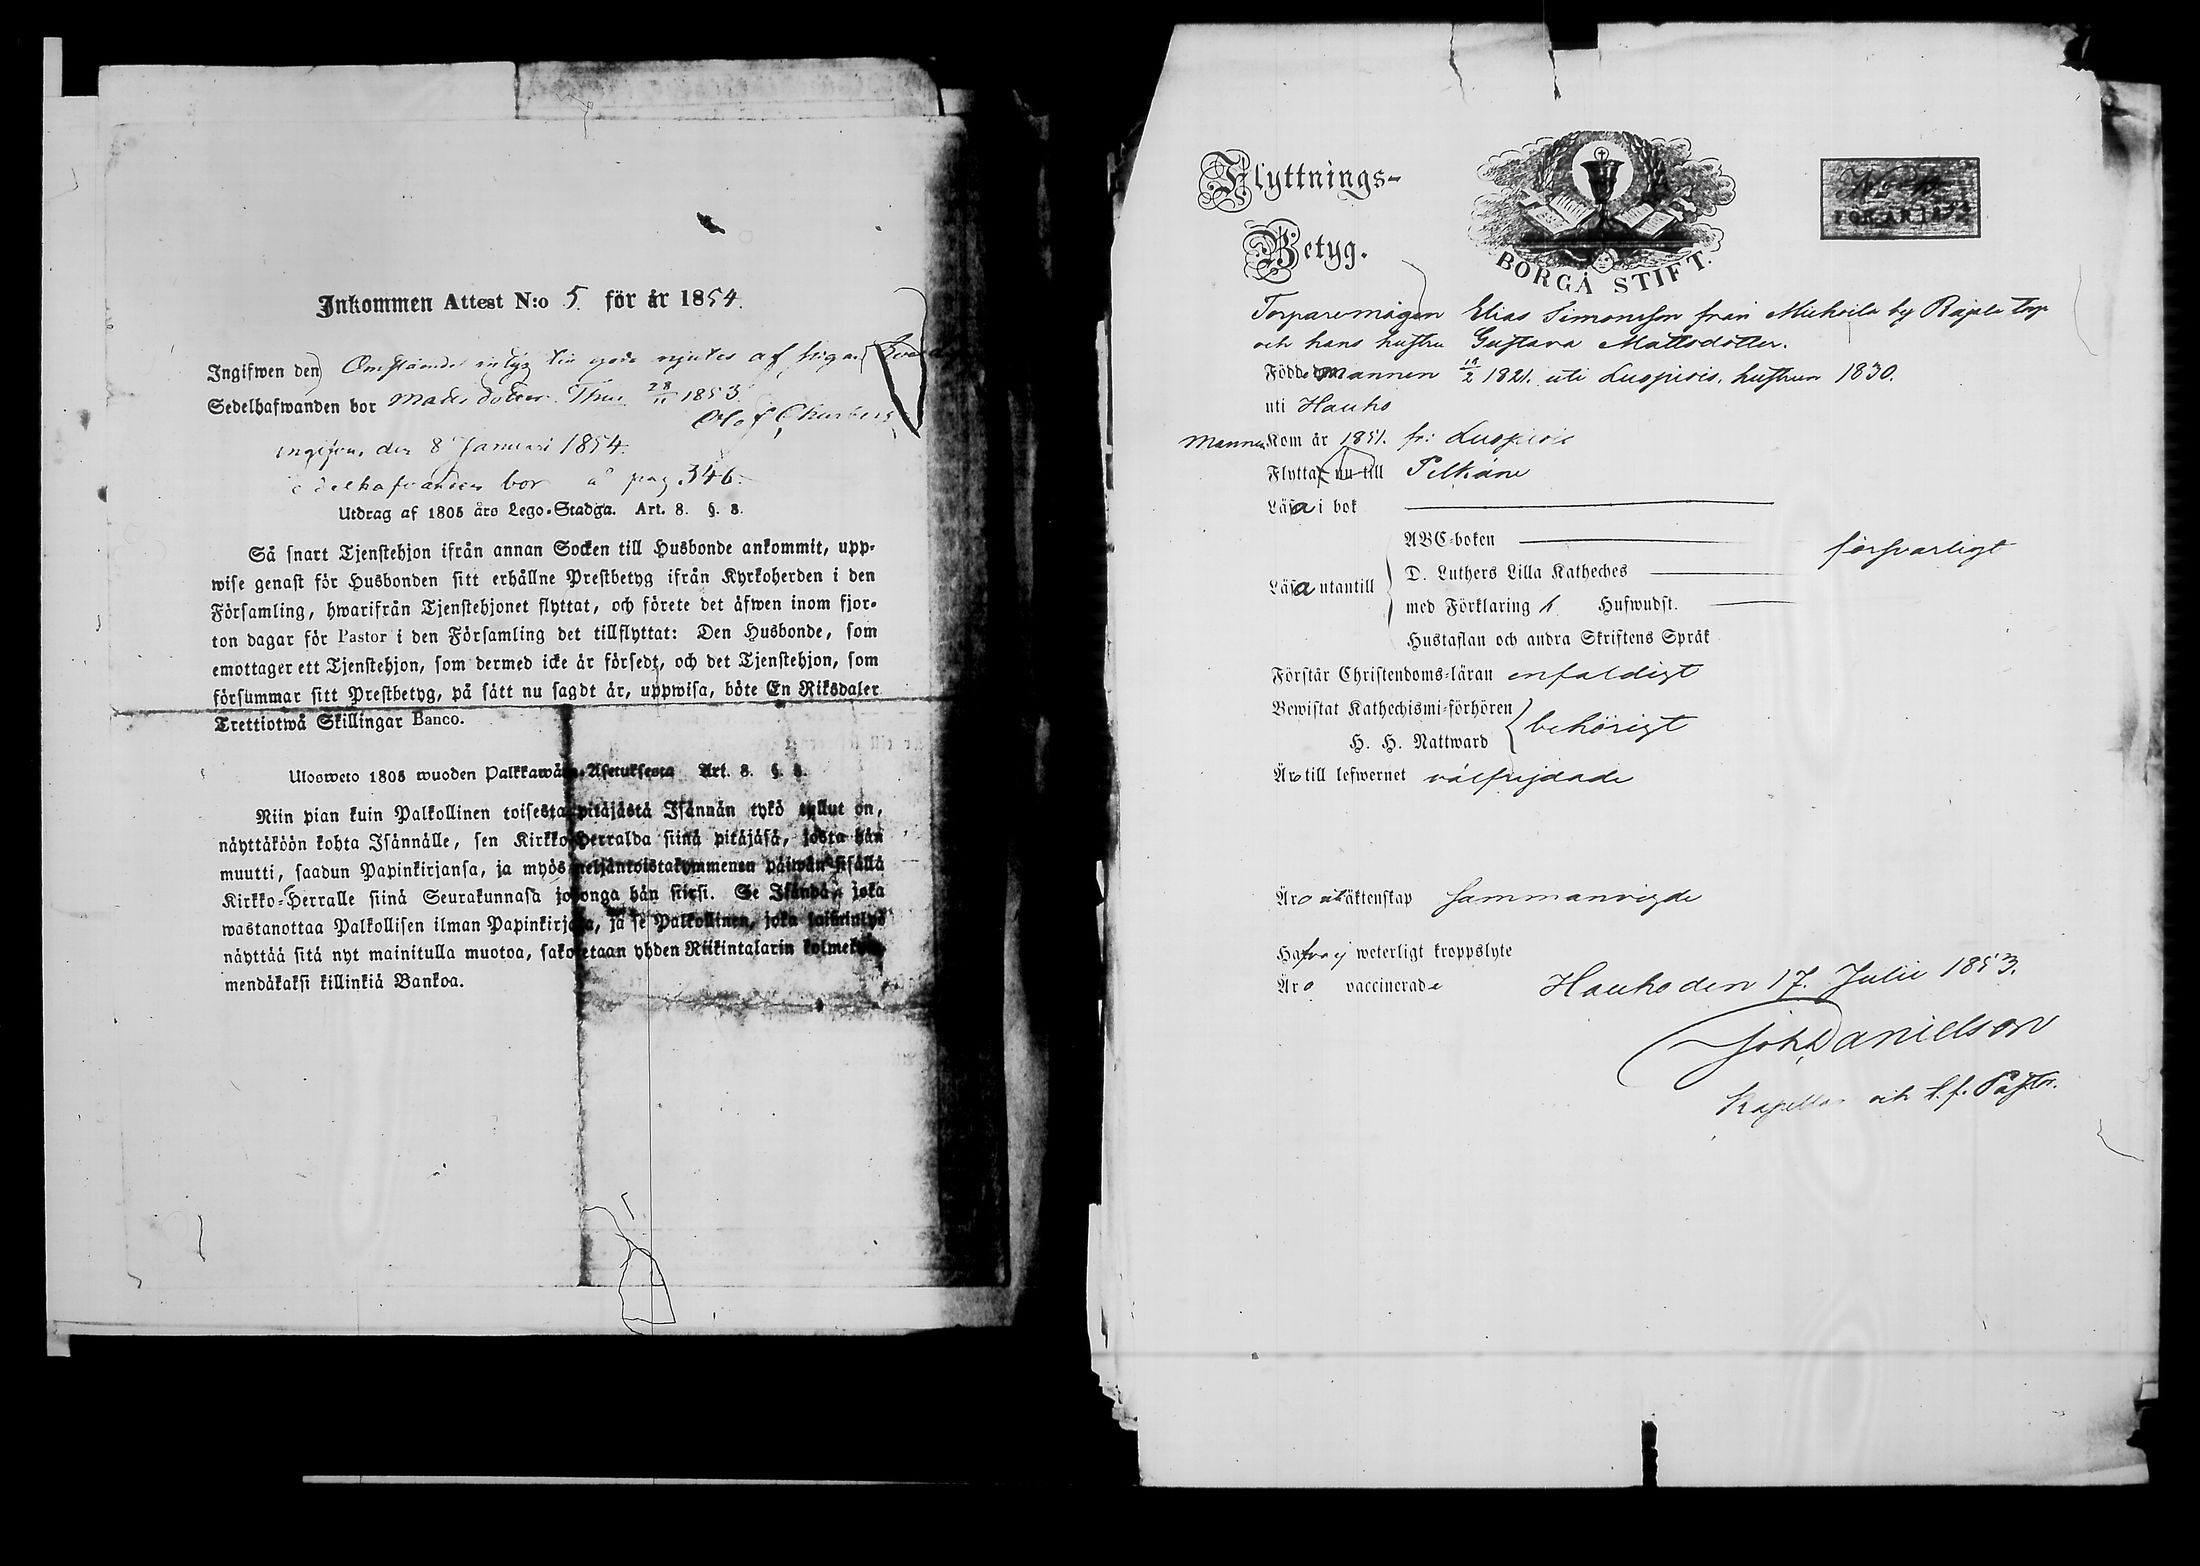 Inkommen Attest N:o 5. för år 1854.
Ingifwen den Omstående intyg till godo njutes af pigan
Sedelhafwanden bor Matts dotter. Thus 28/11 1853.
Olof Churberg
Ingifven, den 8 Januari 1854.
Sedelhafvanden bor å pag 346.
Utdrag af 1805 års Lego-Stadga. Art. 8. §. 8.
Så snart Tjenstehjon ifrån annan Socken till Husbonde ankommit, upp-
wise genast för Husbonden sitt erhållne Prestbetyg ifrån Kyrkoherden i den
Församling, hwarifrån Tjenstehjonet flyttat, och förete det äfwen inom fjor-
ton dagar för Pastor i den Församling det tillflyttat: Den Husbonde, som
emottager ett Tjenstehjon, som dermed icke är försedt, och det Tjenstehjon, som
försummar sitt Prestbetyg, på sätt nu sagdt är, uppwisa, böte En Riksdaler
Trettiotwå Skillingar Banco.
Ulosweto 1805 wuoden Palkkawäen-Asetuksesta Art. 8. §. 8.
Niin pian kuin Palkollinen toisesta pitäjästä Isännän tykö tullut on,
näyttäköön kohta Isännälle, sen Kirkko-Herralda siinä pitäjäsä, josta hän
muutti, saadun Papinkirjansa, ja myös neljäntoistakymmenen päiwän sisällä
Kirkko-Herralle siinä Seurakunnasa johonga hän siirsi. Se Isändä, joka
wastanottaa Palkollisen ilman Papinkirjata, ja se Palkollinen, joka laiminlyö
näyttää sitä nyt mainitulla muotoa, sakotetaan yhden Riikintalarin kolmekym-
mendäkaksi killinkiä Bankoa.
Flyttnings-
Betyg.
BORGÅ STIFT.
FÖR ÅR 1853
Torparemågen Elias Simonsson från Miehoila by Rajala torp
och hans hustru Gustava Mattsdotter.
Födde Mannen 1821. uti Luopiois. hustrun 1830.
uti Hauho
Mannen Kom år 1851. fr: Luopiois
Flytta nu till Pelkäne
Läsa i bok
ABC-boken
försvarligt
D. Luthers Lilla Katheches
Läsa utantill
med Förklaring h Hufwudst.
Hustaflan och andra Skriftens Språk
Förstår Christendoms-läran enfaldigt
Bewistat Kathechismi-förhören
behörigt
H. H. Nattward
Äro till lefwernet välfrejdade
Äro i äktenskap sammanvigde
Hafva ej weterligt kroppslyte
Äro vaccinerade
Hauho den 17. Julii 1853.
Joh. Danielson
Kapellan och t. f. Pastor.